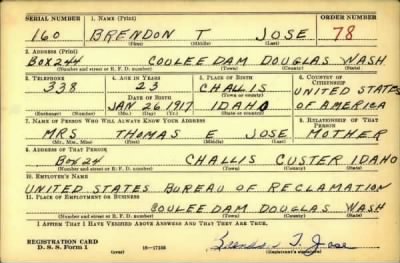 SERIAL NUMBER 1. NAME (Print) ORDER NUMBER
160 BRENDON T JOSE 78
(First) (Middle) (Last)
2. ADDRESS (Print)
BOX 244 COULEE DAM DOUGLAS WASH
(Number and street or R. F. D. number) (Town) (County) (State)
3. TELEPHONE 4. AGE IN YEARS 5. PLACE OF BIRTH 6. COUNTRY OF CITIZENSHIP
338 23 CHALLIS UNITED STATES
DATE OF BIRTH (Town or county)
JAN 26, 1917 IDAHO OF AMERICA
(Exchange) (No.) (Mo.) (Day) (Yr.) (State or country)
7. NAME OF PERSON WHO WILL ALWAYS KNOW YOUR ADDRESS 8. RELATIONSHIP OF THAT PERSON
MRS THOMAS E JOSE MOTHER
(Mr., Mrs., Miss) (First) (Middle) (Last)
9. ADDRESS OF THAT PERSON
BOX 24 CHALLIS CUSTER IDAHO
(Number and street or R. F. D. number) (Town) (County) (State)
10. EMPLOYER'S NAME
UNITED STATES BUREAU OF RECLAMATION
11. PLACE OF EMPLOYMENT OR BUSINESS
COULEE DAM DOUGLAS WASH
(Number and street or R. F. D. number) (Town) (County) (State)
I AFFIRM THAT I HAVE VERIFIED ABOVE ANSWERS AND THAT THEY ARE TRUE.
REGISTRATION CARD
D. S. S. Form 1 (over) 16-17105 Brendon T. Jose